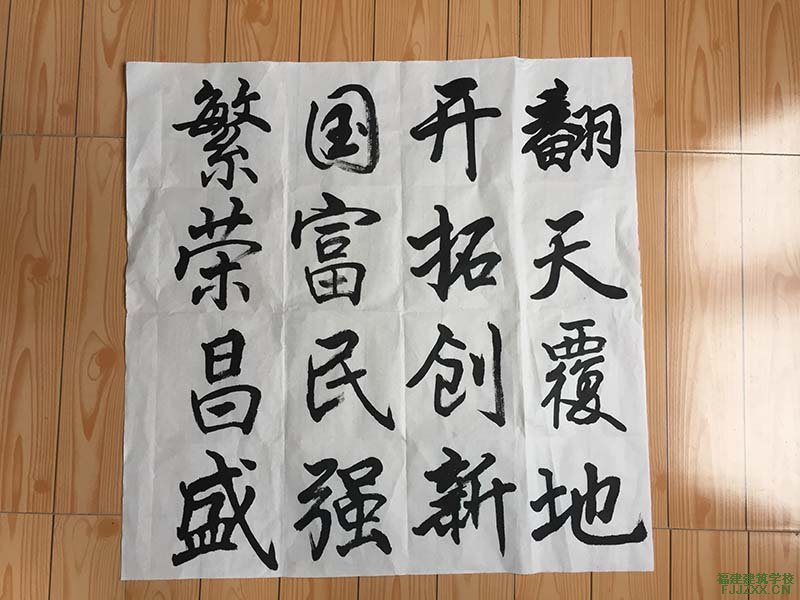 翻天覆地
开拓创新
国富民强
繁荣昌盛
福建建筑学校
FJJZXX.CN